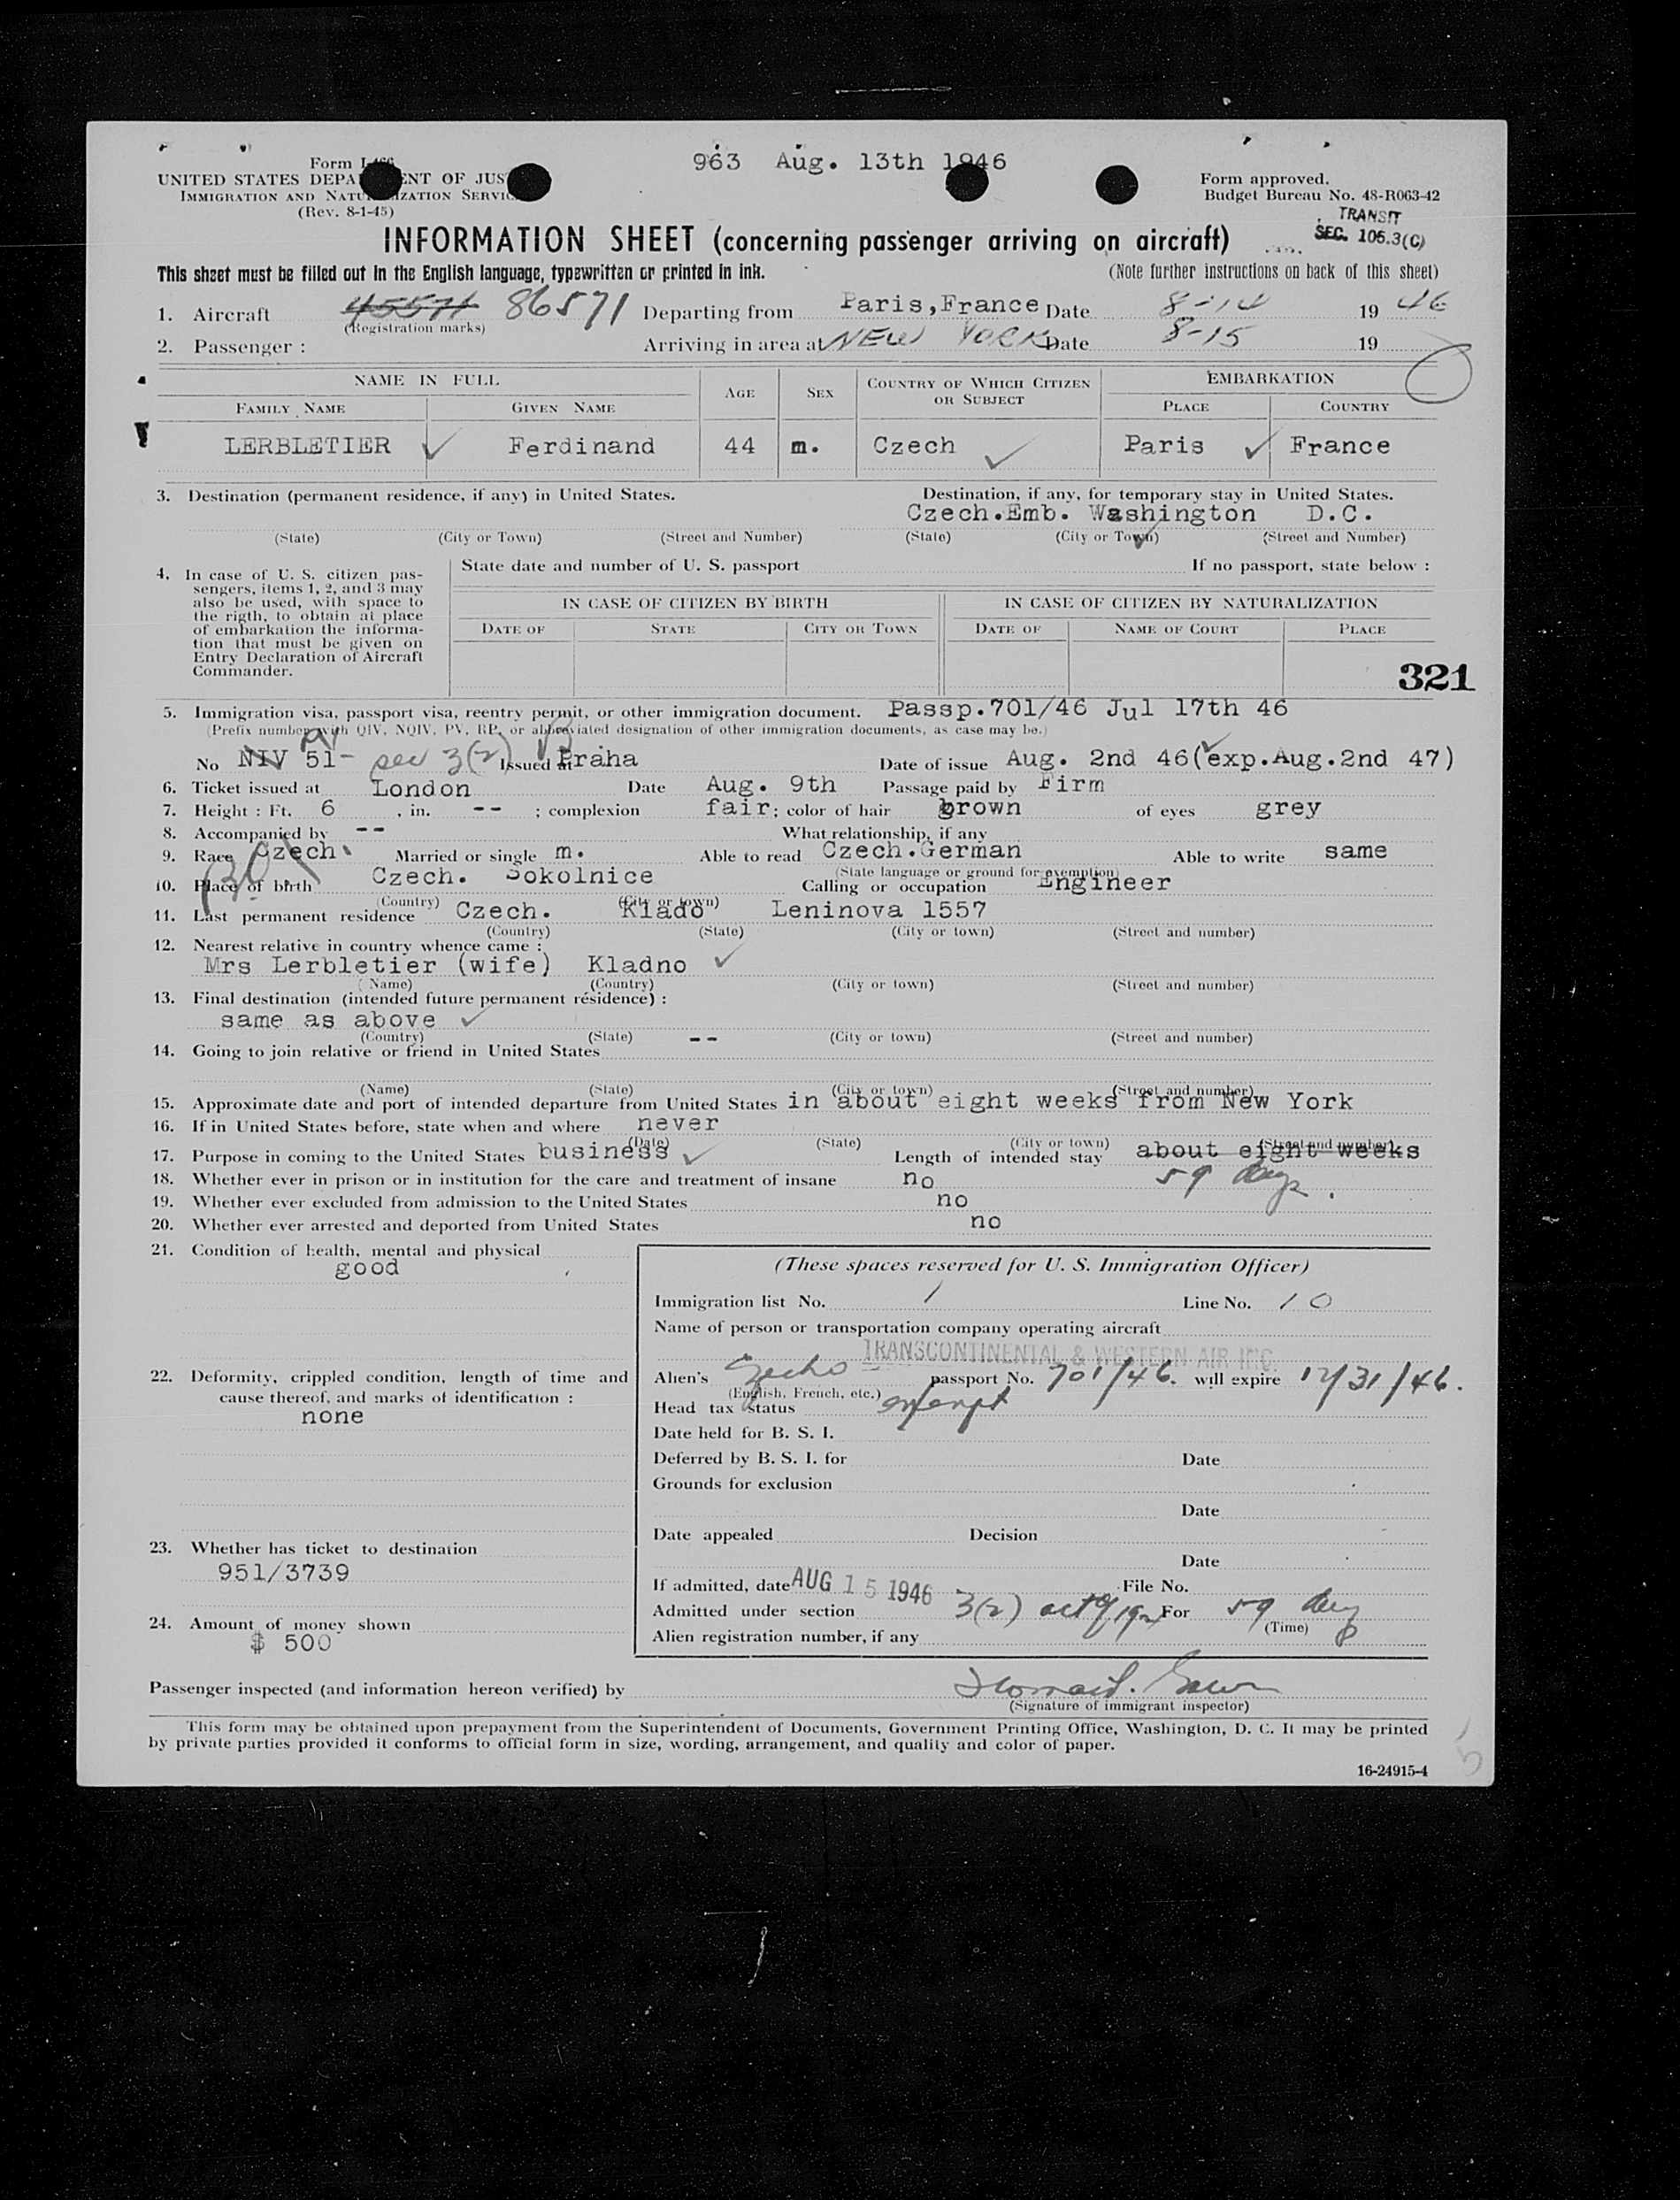 963 Aug. 13th 1946
Form I-466
UNITED STATES DEPARTMENT OF JUSTICE
IMMIGRATION AND NATURALIZATION SERVICE
(Rev. 8-1-45)
Form approved.
Budget Bureau No. 48-R063-42
TRANSIT
SEC. 106.3(C)
INFORMATION SHEET (concerning passenger arriving on aircraft)
This sheet must be filled out in the English language, typewritten or printed in ink.
(Note further instructions on back of this sheet)
1. Aircraft 45571 86571 Departing from Paris, France Date 8-14 19 46
(Registration marks)
2. Passenger : Arriving in area at NEW YORK Date 8-15 19
NAME IN FULL AGE SEX COUNTRY OF WHICH CITIZEN OR SUBJECT EMBARKATION
FAMILY NAME GIVEN NAME PLACE COUNTRY
LERBLETIER Ferdinand 44 m. Czech Paris France
3. Destination (permanent residence, if any) in United States. Destination, if any, for temporary stay in United States.
Czech.Emb. Washington D.C.
(State) (City or Town) (Street and Number) (State) (City or Town) (Street and Number)
4. In case of U. S. citizen pas-
sengers, items 1, 2, and 3 may
also be used, with space to
the rigth, to obtain at place
of embarkation the informa-
tion that must be given on
Entry Declaration of Aircraft
Commander.
State date and number of U. S. passport If no passport, state below :
IN CASE OF CITIZEN BY BIRTH IN CASE OF CITIZEN BY NATURALIZATION
DATE OF STATE CITY OR TOWN DATE OF NAME OF COURT PLACE
321
5. Immigration visa, passport visa, reentry permit, or other immigration document. Passp.701/46 Jul 17th 46
(Prefix number with QIV, NQIV, PV, RP, or abbreviated designation of other immigration documents, as case may be.)
No NIV PV 51- sec 3(2) Issued at Praha Date of issue Aug. 2nd 46(exp.Aug.2nd 47)
6. Ticket issued at London Date Aug. 9th Passage paid by Firm
7. Height : Ft. 6 , in. -- ; complexion fair; color of hair brown of eyes grey
8. Accompanied by -- What relationship, if any
9. Race Czech Married or single m. Able to read Czech.German Able to write same
(State language or ground for exemption)
10. Place of birth Czech. Sokolnice Calling or occupation Engineer
(Country) (City or town)
11. Last permanent residence Czech. Klado Leninova 1557
(Country) (State) (City or town) (Street and number)
12. Nearest relative in country whence came :
Mrs Lerbletier (wife) Kladno
(Name) (Country) (City or town) (Street and number)
13. Final destination (intended future permanent résidence) :
same as above
(Country) (State) -- (City or town) (Street and number)
14. Going to join relative or friend in United States
(Name) (State) (City or town) (Street and number)
15. Approximate date and port of intended departure from United States in about eight weeks from New York
16. If in United States before, state when and where never
(Date) (State) (City or town) (Street and number)
17. Purpose in coming to the United States business Length of intended stay about eight weeks
59 days.
18. Whether ever in prison or in institution for the care and treatment of insane no
19. Whether ever excluded from admission to the United States no
20. Whether ever arrested and deported from United States no
21. Condition of health, mental and physical
good
22. Deformity, crippled condition, length of time and
cause thereof, and marks of identification :
none
23. Whether has ticket to destination
951/3739
24. Amount of money shown
$ 500
(These spaces reserved for U. S. Immigration Officer)
Immigration list No. 1 Line No. 10
Name of person or transportation company operating aircraft
TRANSCONTINENTAL & WESTERN AIR INC.
Alien's Czecho passport No. 701/46. will expire 12/31/46.
(English, French, etc.)
Head tax status exempt
Date held for B. S. I.
Deferred by B. S. I. for Date
Grounds for exclusion
Date
Date appealed Decision
Date
If admitted, date AUG 15 1946 File No.
Admitted under section 3(2) act of 1924 For 59 days
(Time)
Alien registration number, if any
Passenger inspected (and information hereon verified) by
(Signature of immigrant inspector)
This form may be obtained upon prepayment from the Superintendent of Documents, Government Printing Office, Washington, D. C. It may be printed
by private parties provided it conforms to official form in size, wording, arrangement, and quality and color of paper.
16-24915-4